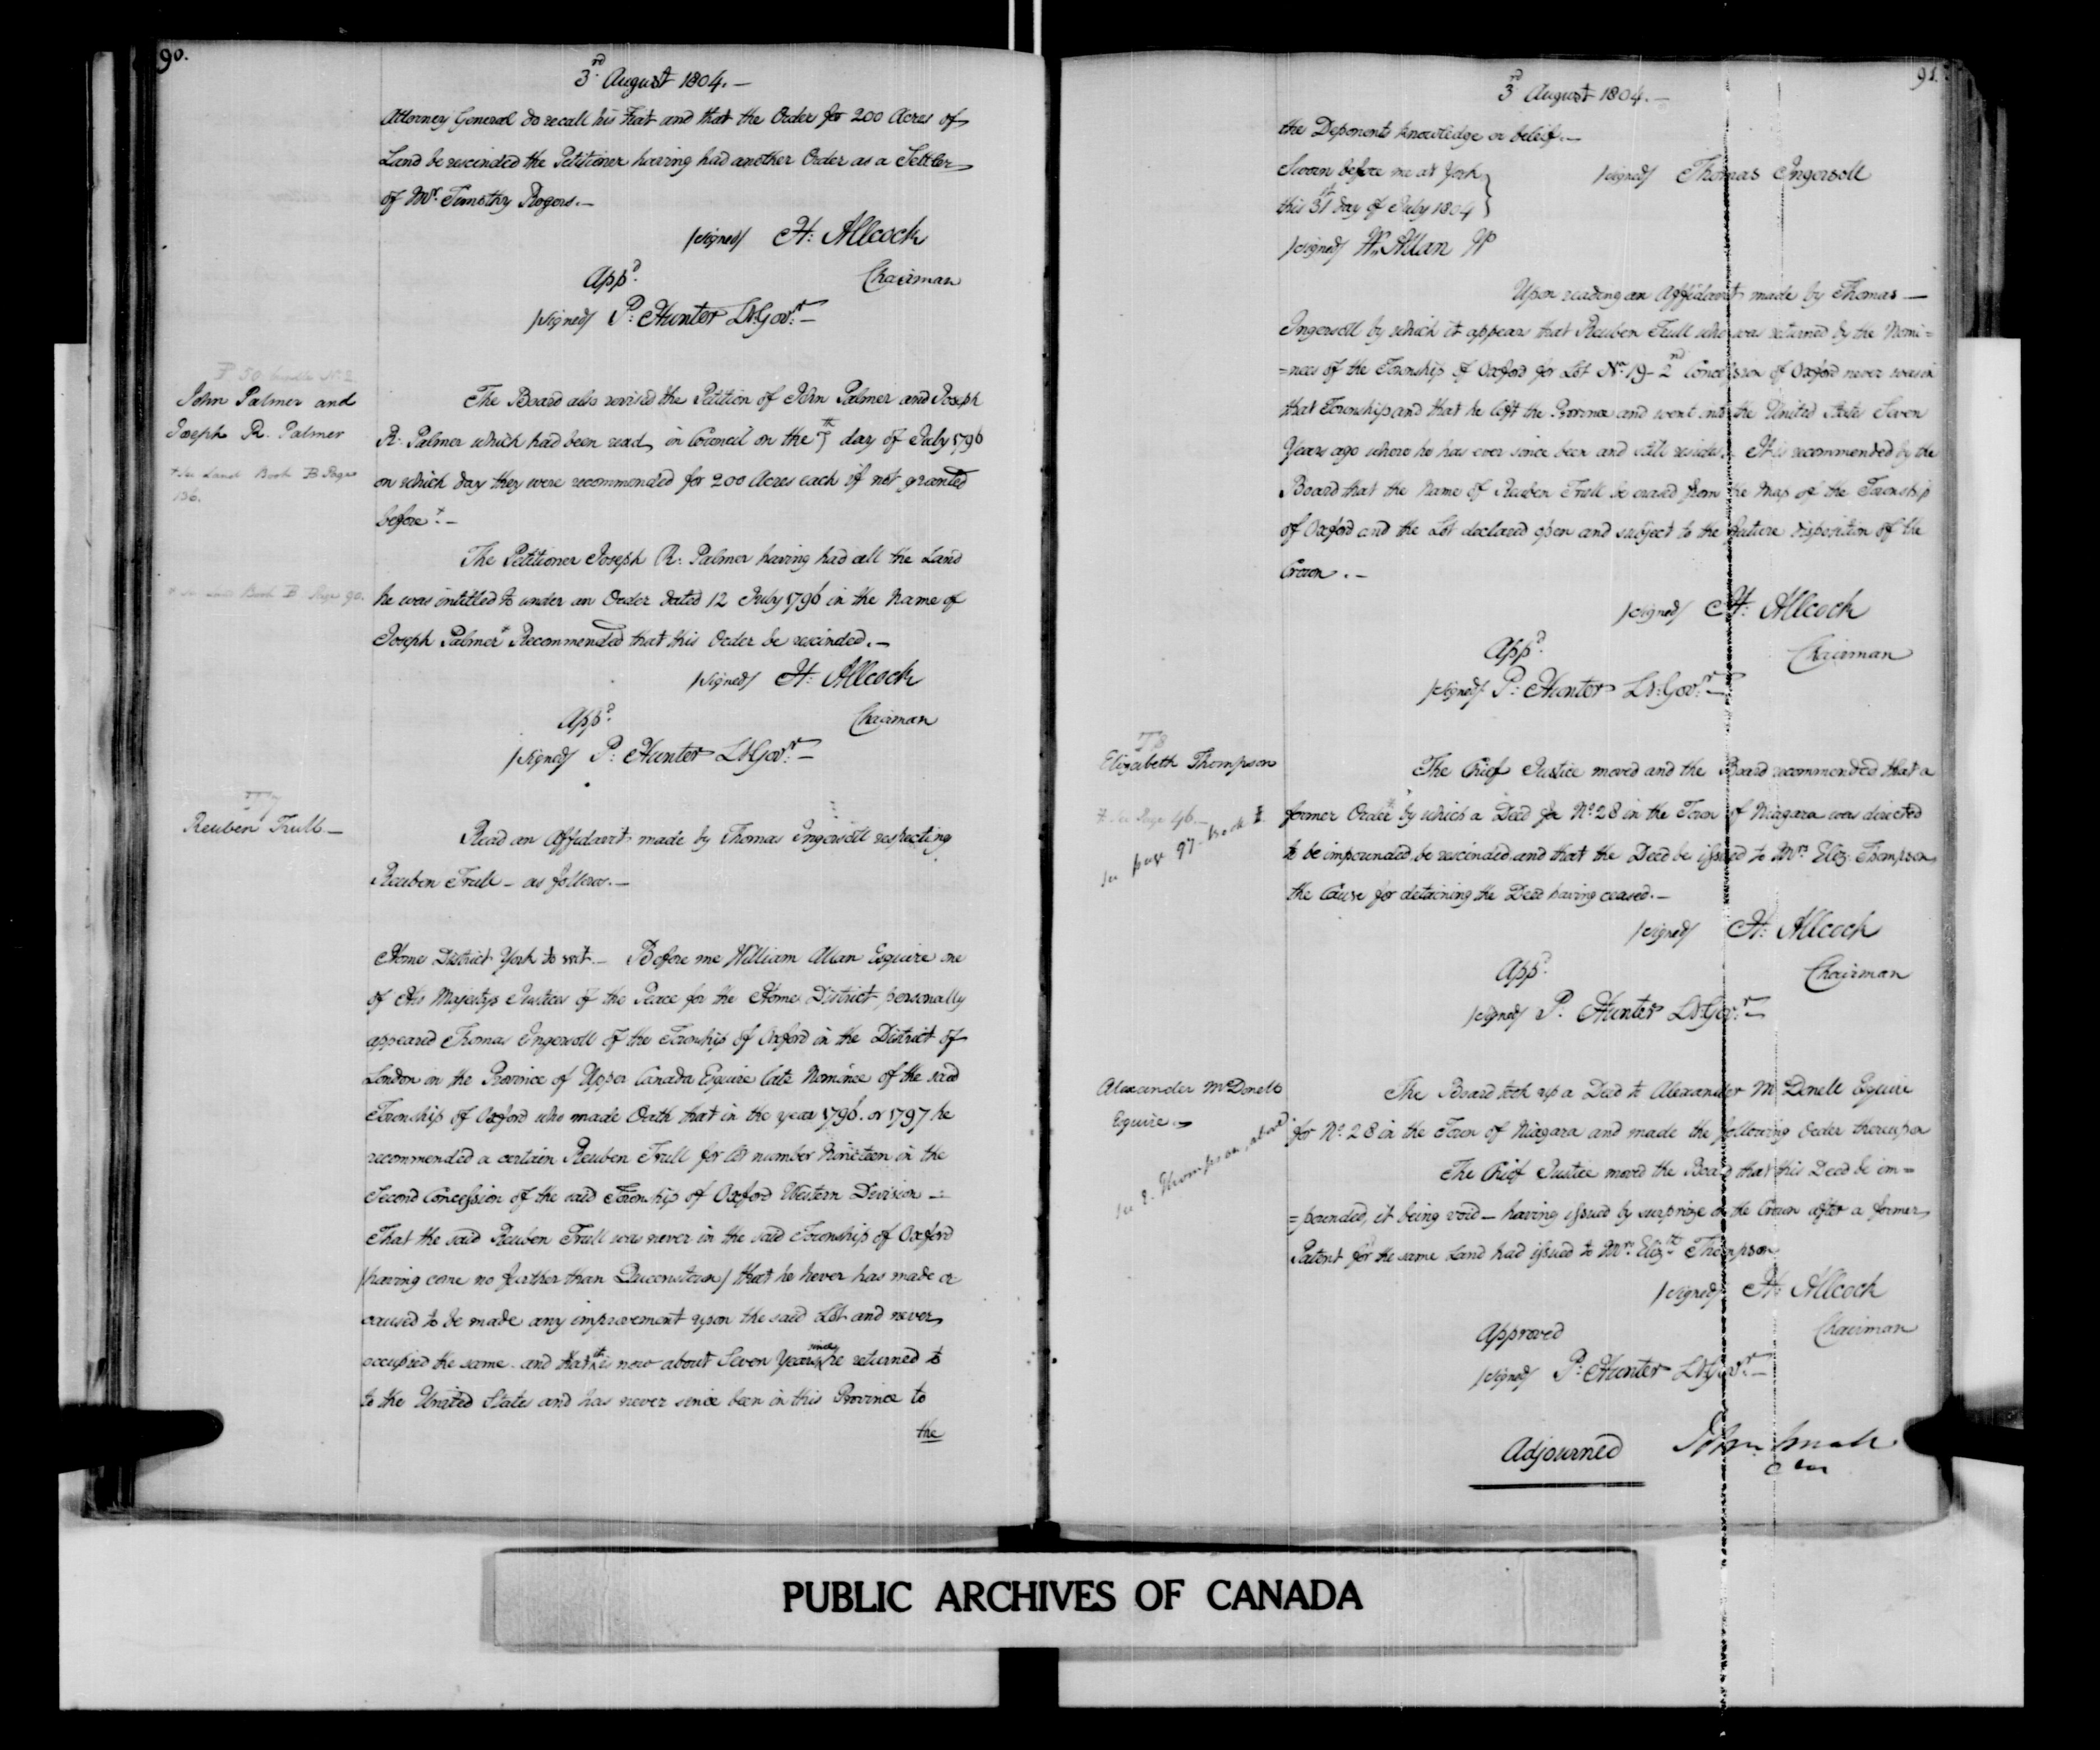 90.
3rd August 1804.—
Attorney General do recall his Fiat and that the Order for 200 Acres of
Land be rescinded the Petitioner having had another Order as a Settler
of Mr. Timothy Rogers.—
/signed/ H: Allcock
Appd. Chairman
/signed/ P: Hunter Lt: Govr:—
John Palmer and
Joseph R. Palmer
+ See Land Book B Page
136.
The Board also revised the Petition of John Palmer and Joseph
R: Palmer which had been read in Council on the 7th day of July 1796
on which day they were recommended for 200 Acres each if not granted
before+.—
The Petitioner Joseph R: Palmer having had all the Land
+ See Land Book B Page 90.
he was intitled to under an Order dated 12 July 1796 in the Name of
Joseph Palmer+ Recommended that this Order be rescinded.—
/signed/ H: Allcock
Appd. Chairman
/signed/ P: Hunter Lt: Govr:—
Reuben Trull—
Read an Affidavit made by Thomas Ingersoll respecting
Reuben Trull – as follows.—
Home District York to wit.— Before me William Allan Esquire one
of His Majestys Justices of the Peace for the Home District personally
appeared Thomas Ingersoll of the Township of Oxford in the District of
London in the Province of Upper Canada Esquire late Nominee of the said
Township of Oxford who made Oath that in the year 1796. or 1797 he
recommended a certain Reuben Trull for Lot number Nineteen in the
Second Concession of the said Township of Oxford Western Division —
That the said Reuben Trull was never in the said Township of Oxford
/having come no further than Queenstown/ that he never has made or
caused to be made any improvement upon the said Lot and never
occupied the same. and that it is now about Seven Years since he returned to
to the United States and has never since been in this Province to
the
91.
3d August 1804.—
the Deponents knowledge or belief.—
Sworn before me at York
this 31st day of July 1804
/signed/ Thomas Ingersoll
/signed/ Wm. Allan JP
Upon reading an Affidavit made by Thomas —
Ingersoll by which it appears that Reuben Trull who was returned by the Nomi=
=nees of the Township of Oxford for Lot No. 19– 2nd Concession of Oxford never was in
that Township and that he left the Province and went into the United States Seven
Years ago where he has ever since been and still resides. It is recommended by the
Board that the Name of Reuben Trull be erased from the Map of the Township
of Oxford and the Lot declared open and subject to the future disposition of the
Crown.—
/signed/ H: Allcock
Appd. Chairman
/signed/ P: Hunter Lt: Govr:—
Elizabeth Thompson
+ See Page 46.—
See page 97– Book
The Chief Justice moved and the Board recommended that a
former Order+ by which a Deed for No. 28 in the Town of Niagara was directed
to be impounded be rescinded and that the Deed be issued to Mrs Eliz: Thompson
the Cause for detaining the Deed having ceased.—
/signed/ H: Allcock
Appd. Chairman
/signed/ P: Hunter Lt: Govr:—
Alexander McDonell
Esquire.
See E. Thompson, above
The Board took up a Deed to Alexander McDonell Esquire
for No. 28 in the Town of Niagara and made the following Order thereupon
The Chief Justice moved the Board that this Deed be im=
=pounded, it being void – having issued by surprize on the Crown after a former
Patent for the same Land had issued to Mrs Elizth Thompson
/signed/ H: Allcock
Approved Chairman
/signed/ P: Hunter Lt: Govr:—
Adjourned John Small
PUBLIC ARCHIVES OF CANADA